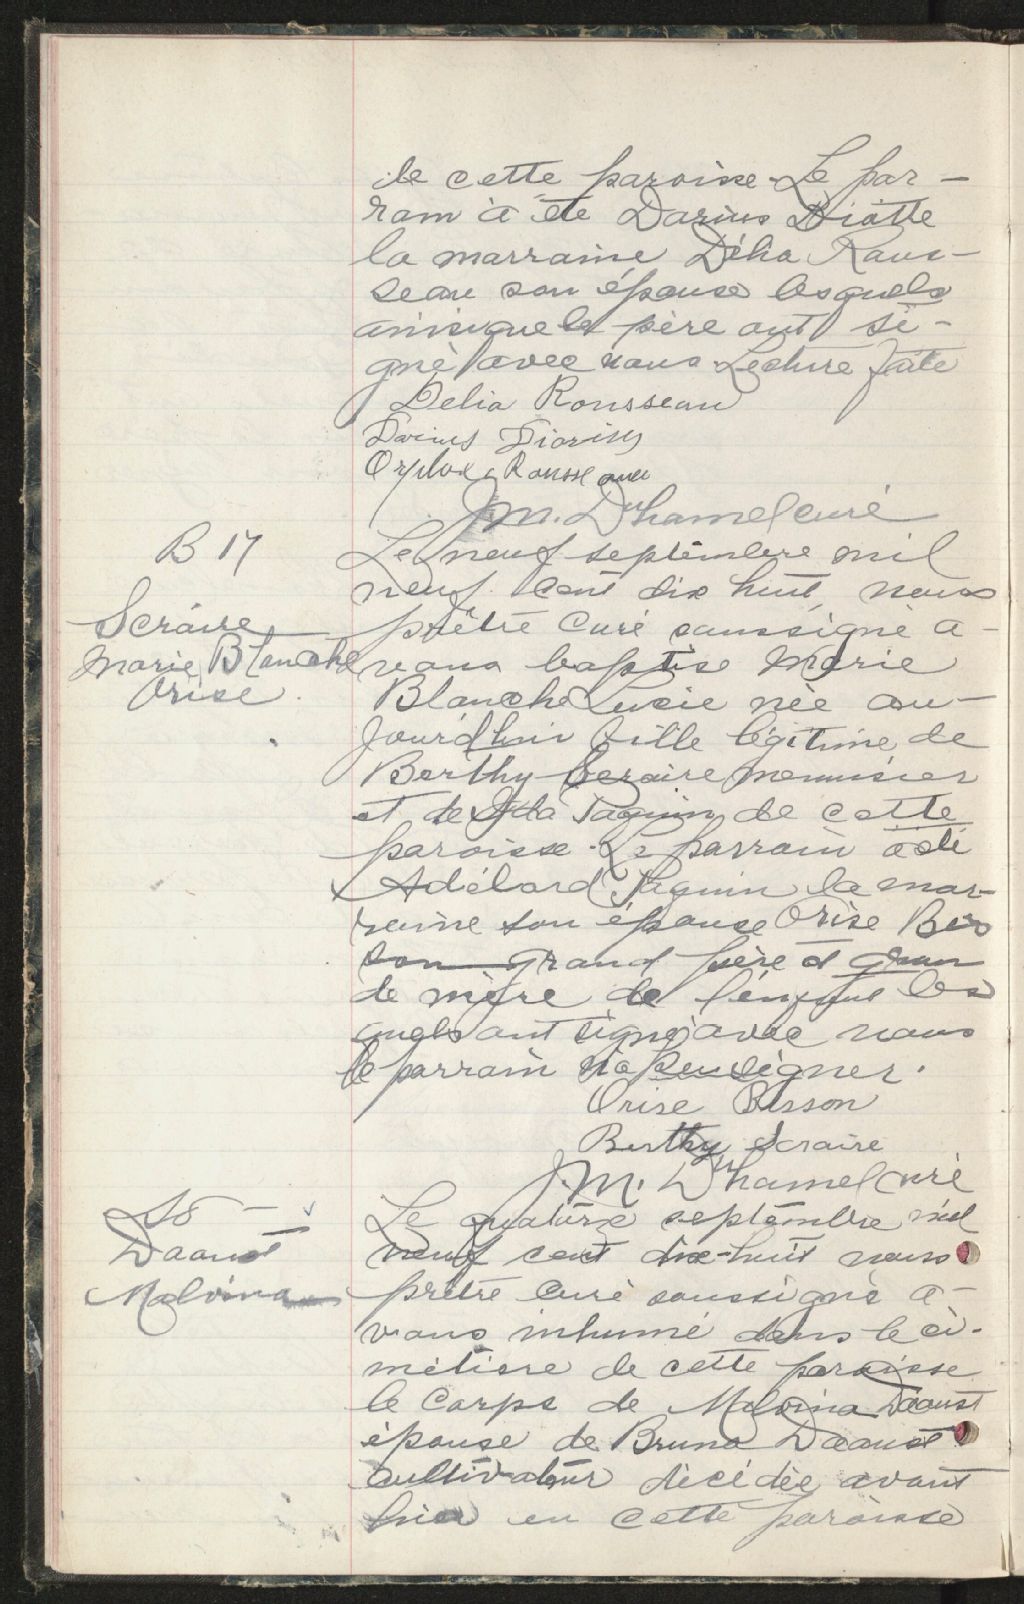 de cette paroisse. Le par-
rain a été Darius Diotte
la marraine Délia Rous-
seau son épouse lesquels
ainsi que le père ont si-
gné avec nous Lecture faite
Delia Rousseau
Darius
Rousseau
J.M. Duhamel curé
B 17
Scraire
Marie Blanche
Orise
Le neuf septembre mil
neuf cent dix huit, nous
prêtre curé soussigné a-
vons baptisé Marie
Blanche Lucie née au-
jourd'hui fille légitime de
Berthy Scraire menuisier
et de Ida Paquin de cette
paroisse. Le parrain a été
Adélard Paquin la mar-
raine son épouse Orise Bis
son grand père et gran
de mère de l'enfant les
quels ont signé avec nous
le parrain n'a su signer.
Orise Bisson
Berthy Scraire
J.M. Duhamel curé
S8
Daoust
Malvina
Le quatorze septembre mil
neuf cent dix-huit nous
prêtre curé soussigné a-
vons inhumé dans le ci-
metière de cette paroisse
le corps de Malvina Daoust
épouse de Bruno Daoust
cultivateur décédée avant
hier en cette paroisse